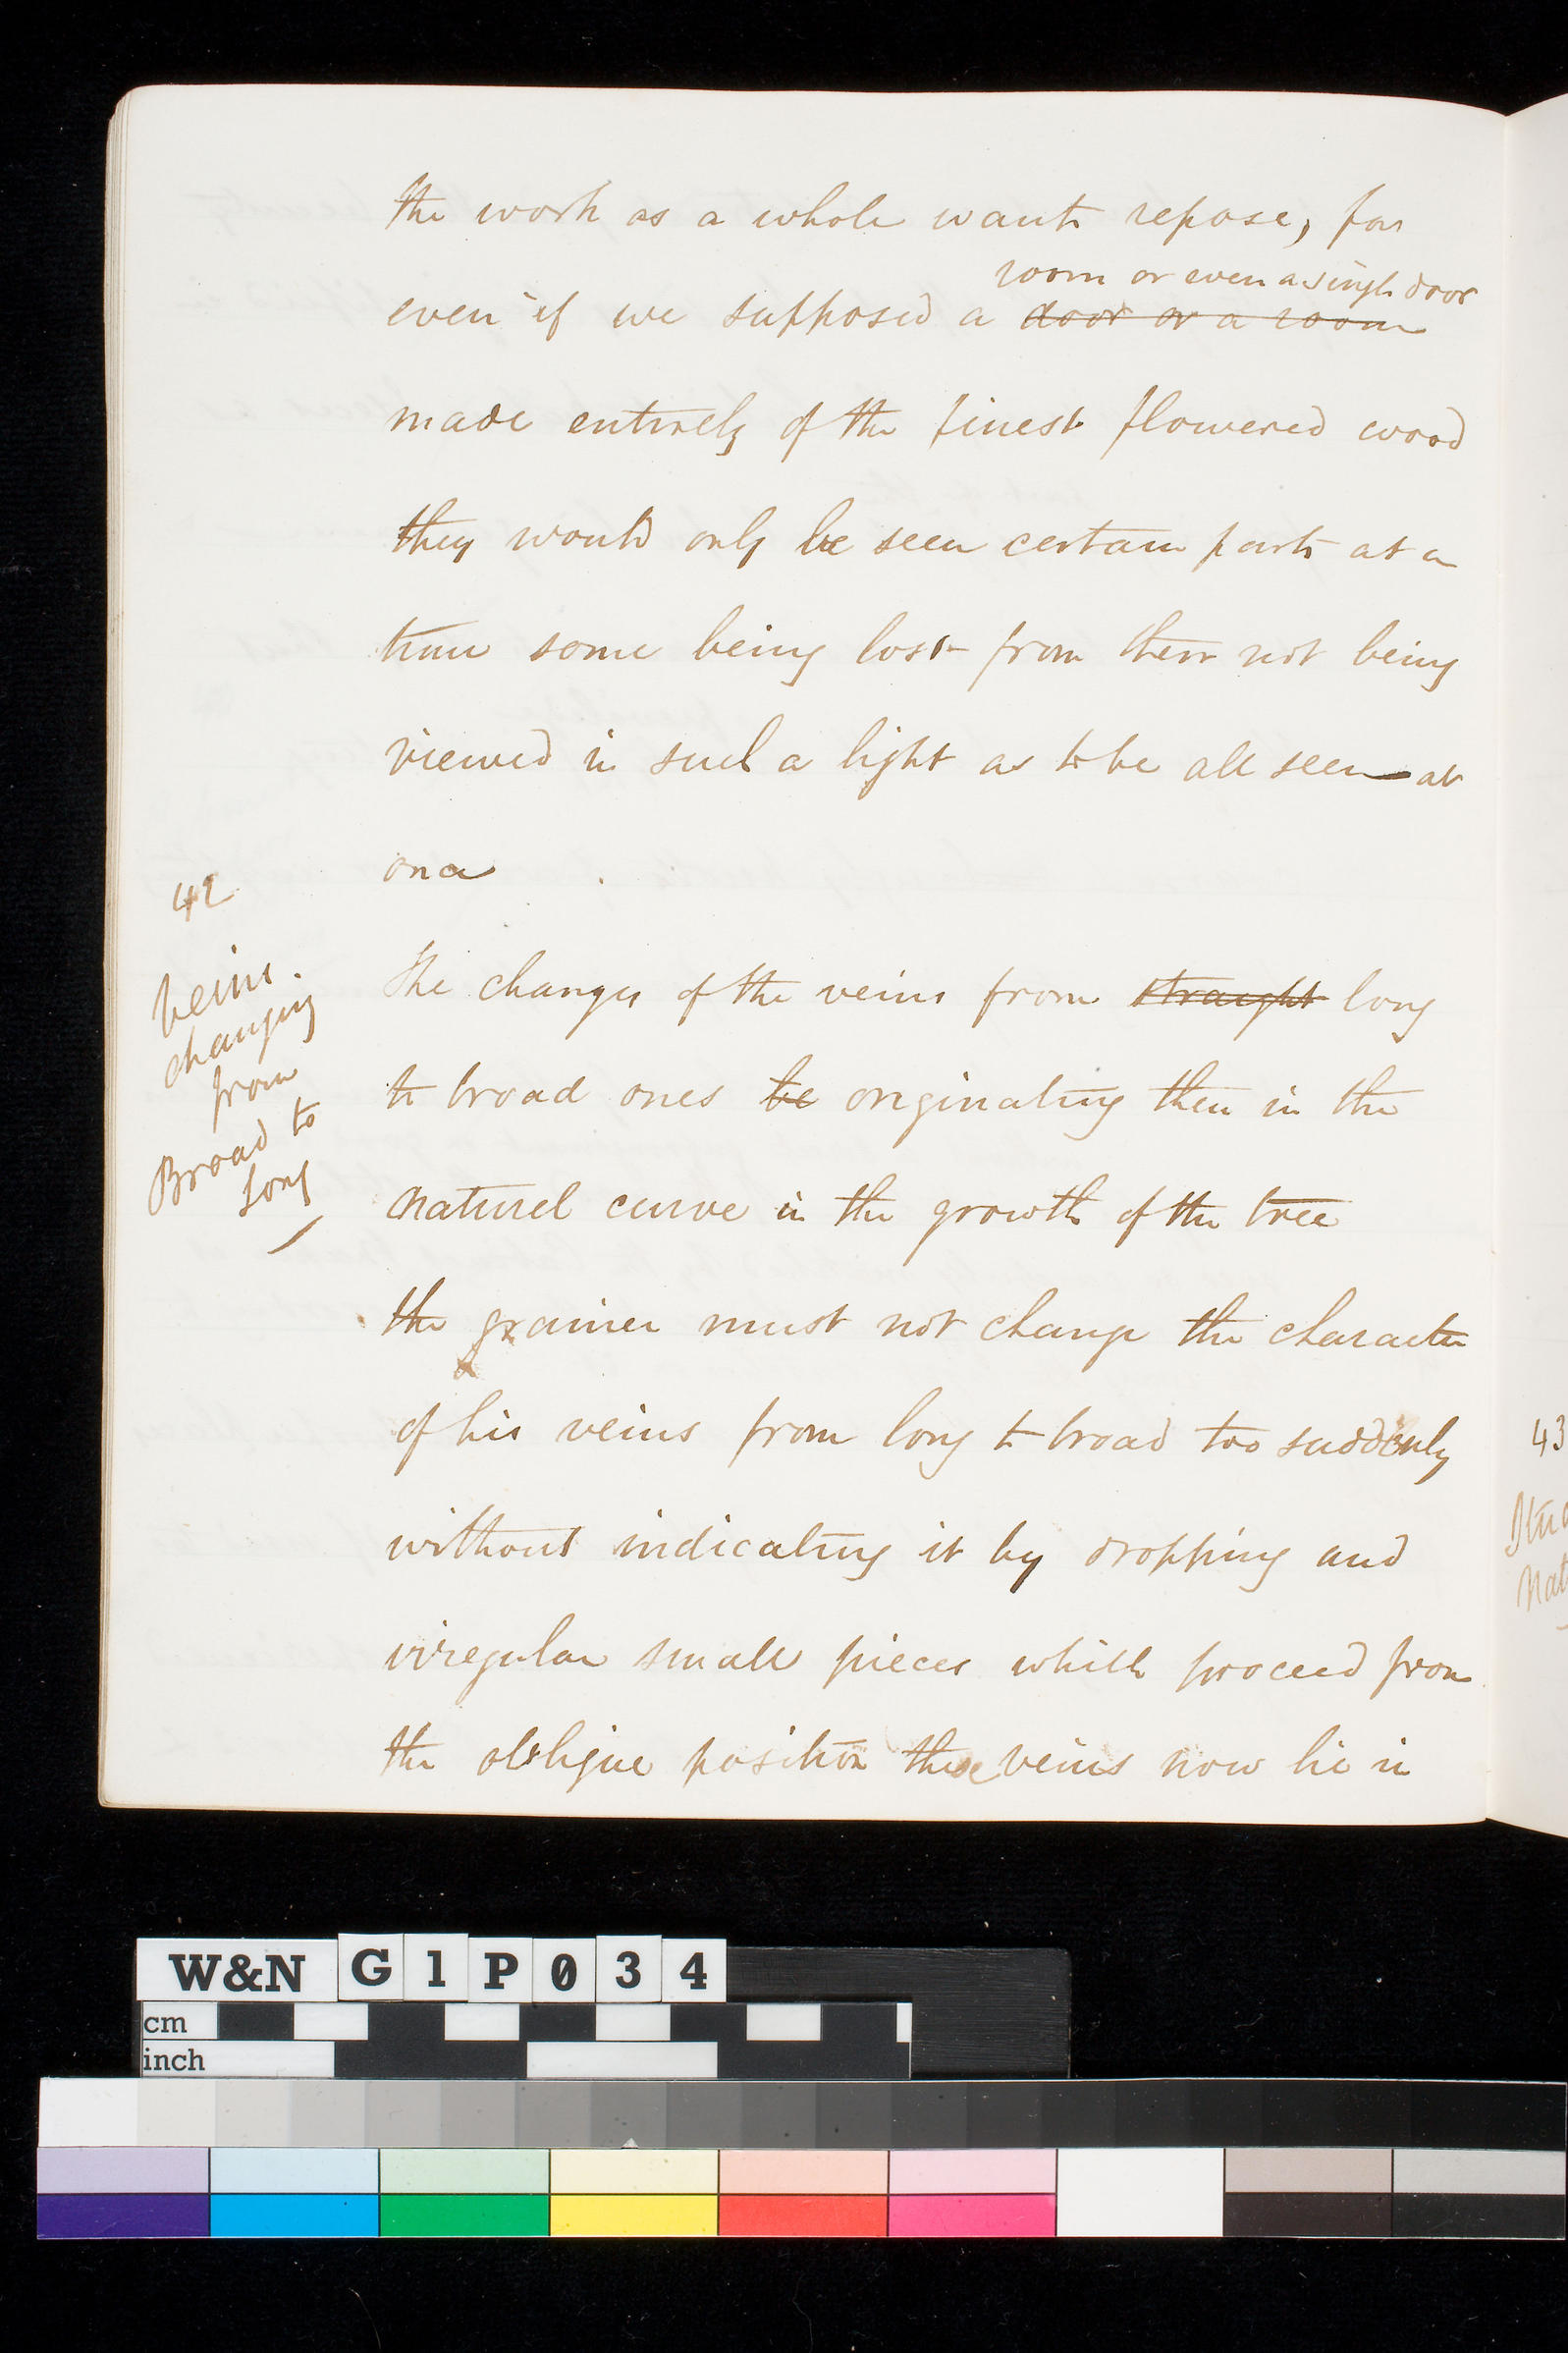 the work as a whole wants repose, for
room or even a single door
even if we supposed a door or a room
made entirely of the finest flowered wood
they would only be seen certain parts at a
time some being lost from their not being
viewed in such a light as to be all seen at
once
42
Veins.
changing
from
Broad to
long
The changes of the veins from straight long
to broad ones be originating then in the
naturel curve in the growth of the tree
the grainer must not change the character
of his veins from long to broad too suddenly
without indicating it by dropping and
irregular small pieces which proceed from
the oblique position these veins now lie in
43
Nat
W&N G1P034
cm
inch